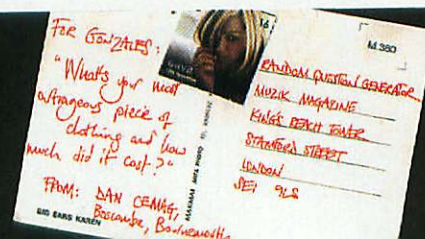 FOR GONZALES:
"What's your most
outrageous piece of
clothing and how
much did it cost?"
FROM: DAN CEMAG,
Boscombe, Bournemouth
BIG BABS KAREN
M.360
RANDOM QUESTION GENERATOR
MUZIK MAGAZINE
KING'S REACH TOWER
STAMFORD STREET
LONDON
SE1 9LS